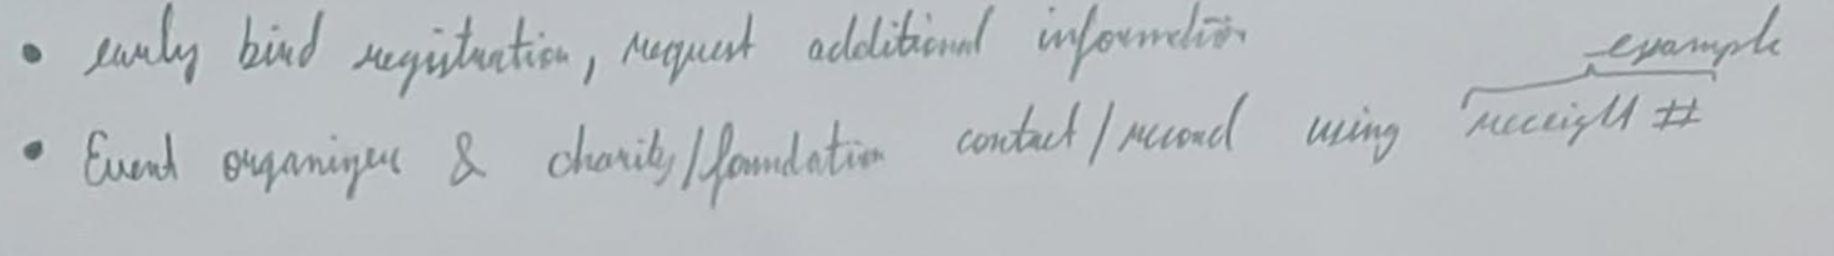 • early bird registration, request additional information
example
• Event organizer & charity/foundation contact/record using receipt #